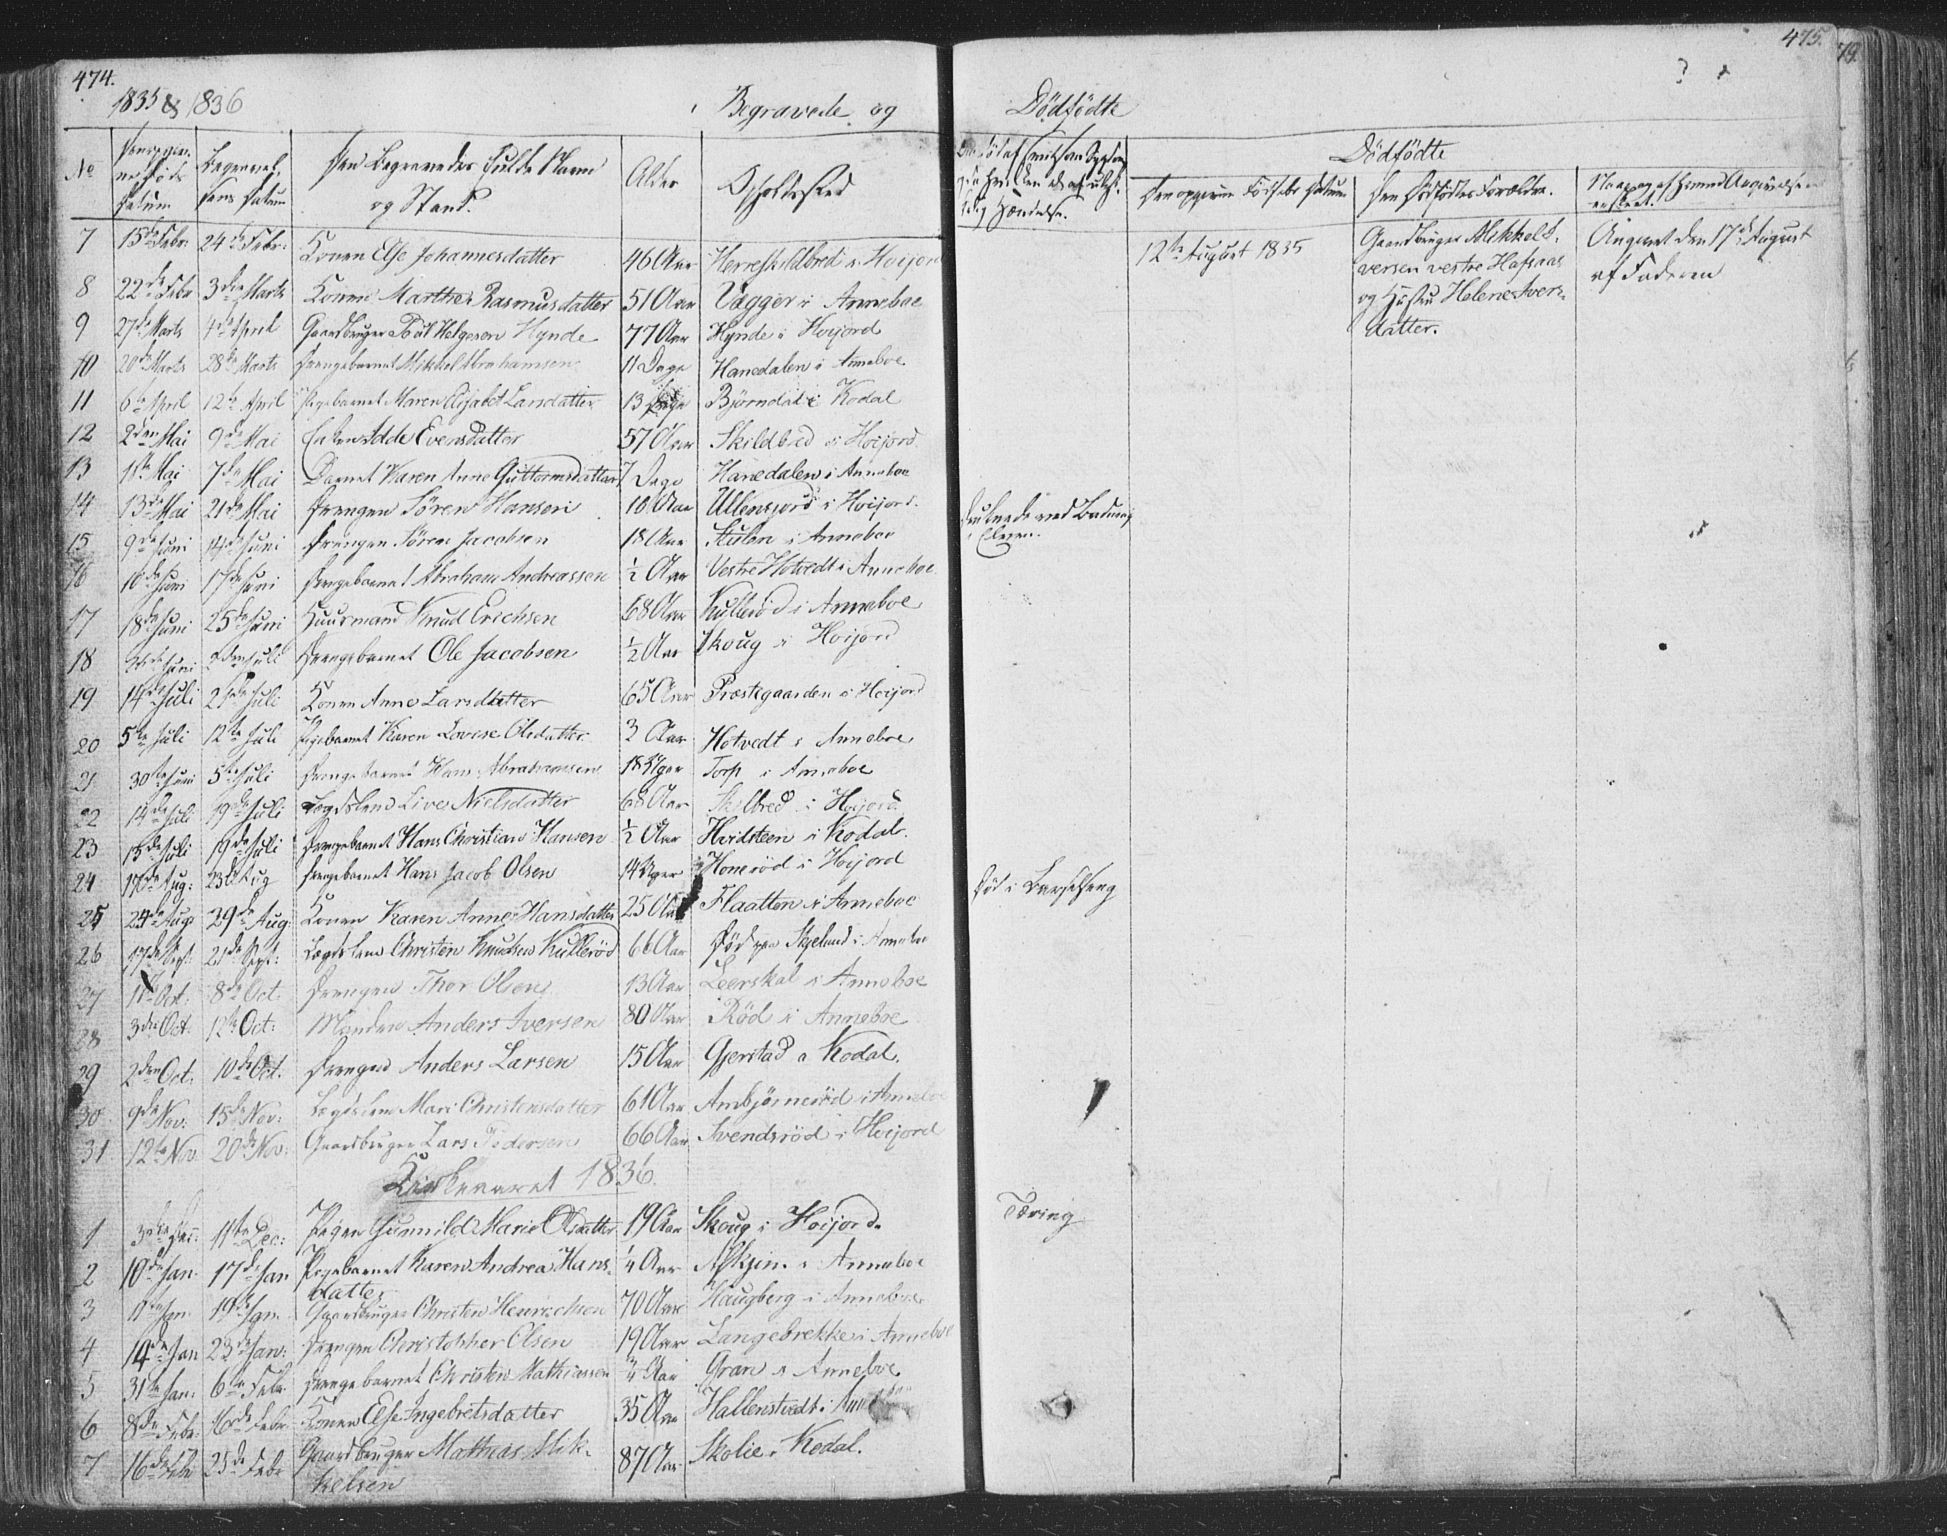 474.
475.
1835 & 1836
Begravede og Dödfödte
No
Begravel-
sens Datum
Den Begravedes fulde Navn
og Stand.
Alder
Opholdssted
Dödfödte
7 15de Febr: 24de Febr: Konen Else Johannesdatter 46 Aar Herreskildbred i Hoijord
8 22de Febr 3die Marts Konen Marthe Rasmusdatter 51 Aar Vegger i Anneboe
9 27de Marts 4de April Gaardbruger Poul Helgesen Hynde 77 Aar Hynde i Hoijord
10 20de Marts 28de Marts Drengebarnet Mikkel Abrahamsen 11 Dage Hanedalen i Anneboe
11 6te April 12te April Pigebarnet Maren Elisabet Larsdatter 13 Dage Björndal i Kodal
12 2den Mai 9de Mai Enken Adde Evensdatter 57 Aar Skildbred i Hoijord
13 1ste Mai 7de Mai Barnet Karen Anne Guttormsdatter 7 Dage Hanedalen i Anneboe
14 13de Mai 21de Mai Drengen Sören Hansen 10 Aar Ullensjord i Hoijord.
15 9de Juni 14de Juni Drengen Sören Jacobsen 18 Aar Stulen i Anneboe
druknede ved Badning
i Elven.
16 10de Juni 17de Juni Drengebarnet Abraham Andreassen ½ Aar Vestre Hotvedt i Anneboe
17 18de Juni 25de Juni Huusmand Knud Erichsen 68 Aar Kulleröd i Anneboe
18 Juni Juli Drengebarnet Ole Jacobsen ½ Aar Skoug i Hoijord
19 14de Juli 21de Juli Konen Anne Larsdatter 65 Aar Præstegaarden i Hoijord
20 5te Juli 12te Juli Pigebarnet Karen Lovise Olsdatter 3 Aar Hotvedt i Anneboe
21 30te Juni 5te Juli Drengebarnet Hans Abrahamsen 18 Uger Torp i Anneboe
22 14de Juli 19de Juli Lægdslem Live Nielsdatter 68 Aar Skilbred i Hoijord
23 15de Juli 19de Juli Drengebarnet Hans Christian Hansen ½ Aar Hvidsteen i Kodal.
24 17de Aug: 23de Aug Drengebarnet Hans Jacob Olsen 14 Uger Honeröd i Hoijord
25 24de Aug 29de Aug: Konen Karen Anne Hansdatter 25 Aar Flaatten i Anneboe Död i Barselseng
26 17de Sept: 21de Sept: Lægdslem Christen Knudsen Kulleröd 66 Aar Död paa Skjelund i Anneboe
27 1ste Oct: 8de Oct: Drengen Thor Olsen 13 Aar Leerskal i Anneboe
28 3die Oct. 12te Oct: Manden Anders Iversen 80 Aar Röd i Anneboe
29 2den Oct. 10de Oct. Drengen Anders Larsen 15 Aar Gjerstad i Kodal.
30 9de Nov: 15de Nov: Lægdslem Mari Christensdatter 61 Aar Ambjörneröd i Anneboe
31 12te Nov 20de Nov: Gaardbruger Lars Pedersen 66 Aar Svendsröd i Hoijord
Kirkeaaret 1836.
1 3die Dec: 11te Dec: Pigen Gunnild Marie Olsdatter 19 Aar Skoug i Hoijord Tæring
2 10de Jan. 17de Jan Pigebarnet Karen Andrea Hans-
datter ¼ Aar Askjem i Anneboe
3 11te Jan. 19de Jan. Gaardbruger Christen Henrichsen 70 Aar Haugberg i Anneboe
4 14de Jan 23de Jan: Drengen Christopher Olsen 19 Aar Langebrekke i Anneboe
5 31te Jan: 6te Febr Drengebarnet Christen Mathiassen ¾ Aar Gran i Anneboe
6 8de Febr: 16de Febr Konen Else Ingebretsdatter 35 Aar Hallenstvedt i Anneboe
7 16de Febr 25de Febr Gaardbruger Mathias Mik-
kelsen 87 Aar Skolie i Kodal.
12te August 1835
Gaardbruger Mikkel I-
versen vestre Hafsaas
og Hustru Helene Ivers-
datter.
Angivet den 17de August
af Faderen